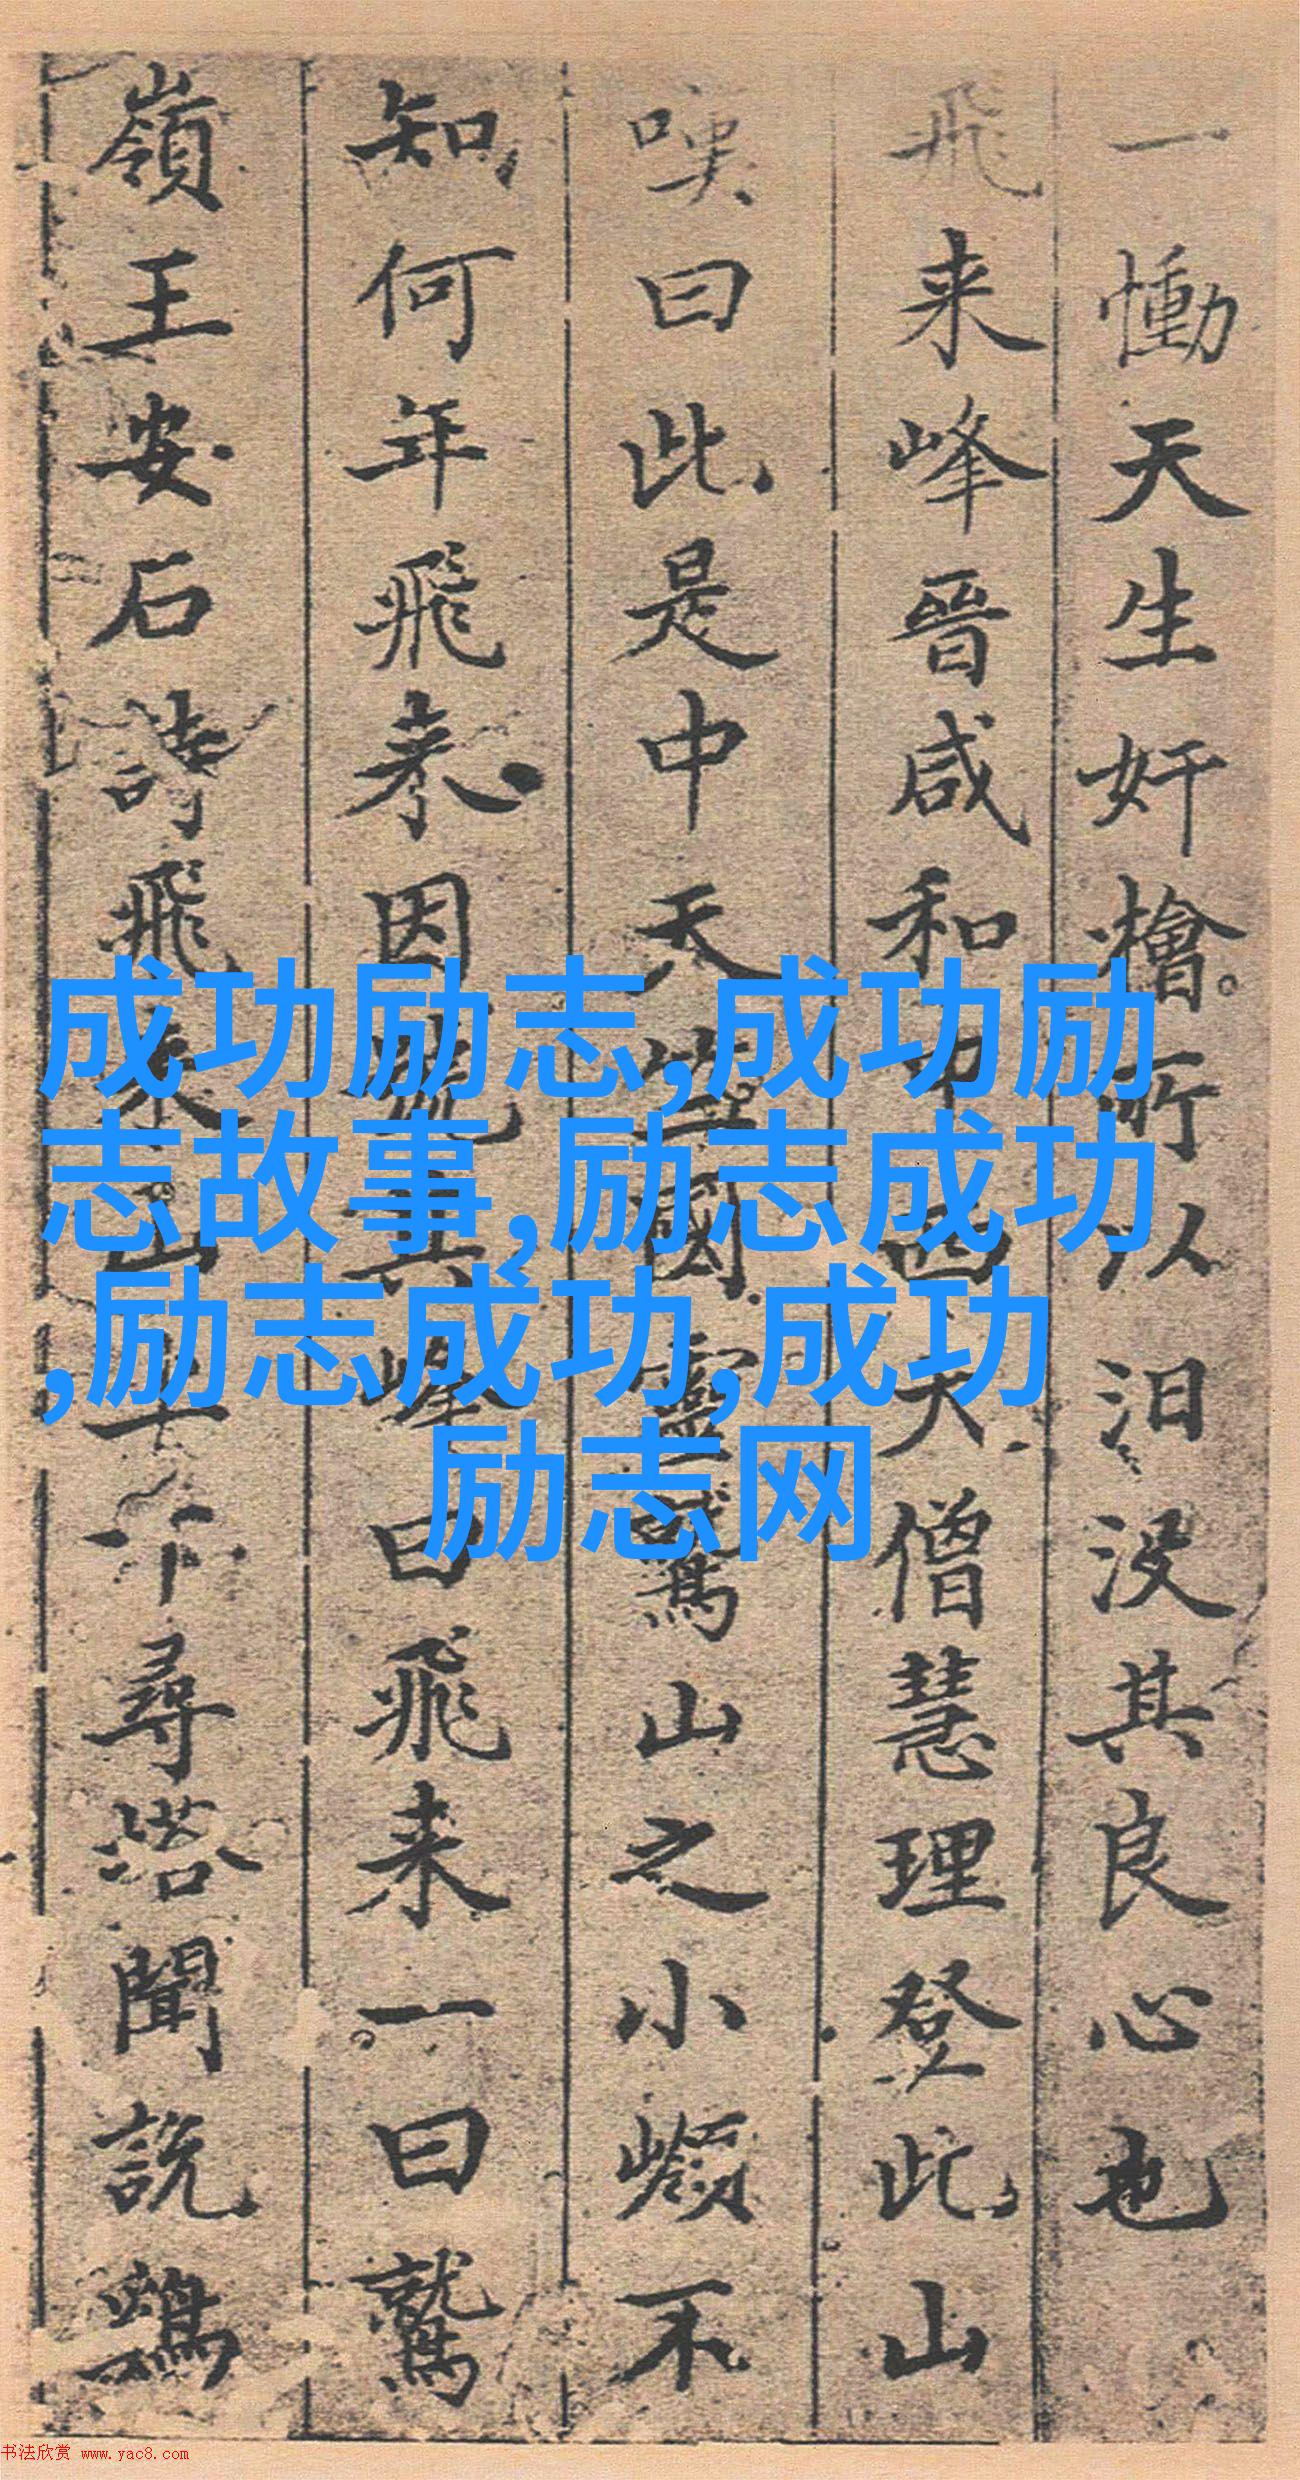 一慟天生奸檜所以汨没其良心也
飛来峰晉咸和中西天僧慧理登此山
嘆曰此是中天竺國靈鷲山之小嶺不
知何年飛來因號其峰曰飛来一曰鷲
嶺王安石詩飛來山上千尋塔聞說鷄
成功励志,成功励
志故事,励志成功
,励志成功,成功
励志网
书法欣赏 www.yac8.com